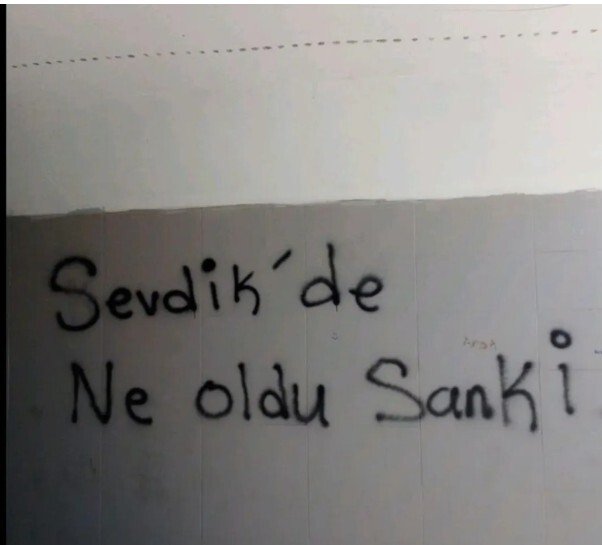 Sevdik'de
Ne oldu Sanki